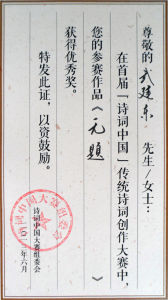 尊敬的 武建东 先生/女士：
在首届「诗词中国」传统诗词创作大赛中，
您的参赛作品《无题》
获得优秀奖。
特发此证，以资鼓励。
诗词中国大赛组委会